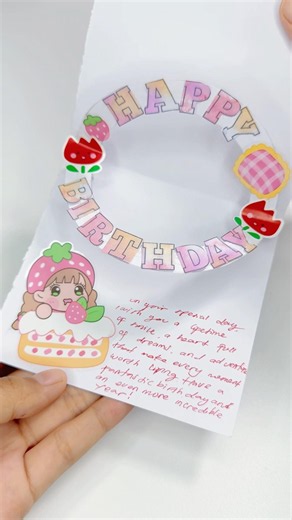 HAPPY
BIRTHDAY
in your special day
wish you a lifetime
of smile, a heart full
of dreams, and
that make every moment
worth living. Have a
fantastic birthday and
an even more incredible
year!